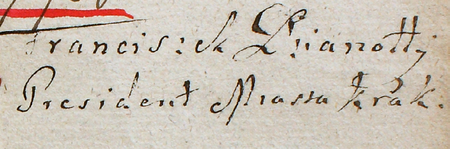 Franciszek Lzianotty
President Miasta Krak.